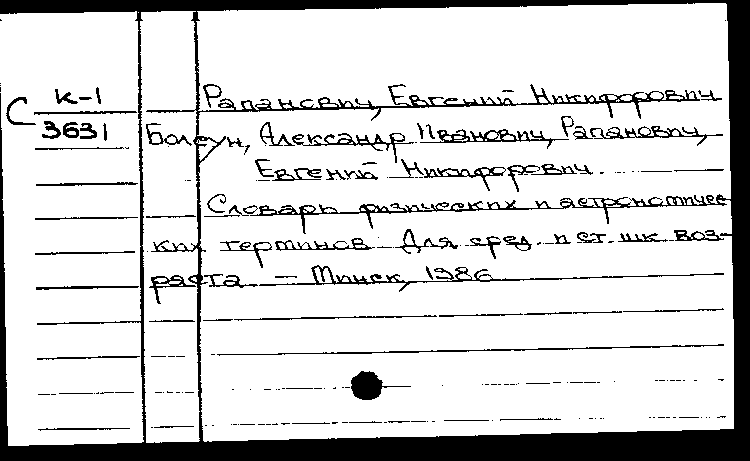 Рапанович, Евгений Никифорович
С К-1
3631
Болсун, Александр Иванович, Рапанович,
Евгений Никифорович.
Словарь физических и астрономичес
ких терминов Для сред. и ст. шк воз-
раста – Минск, 1986